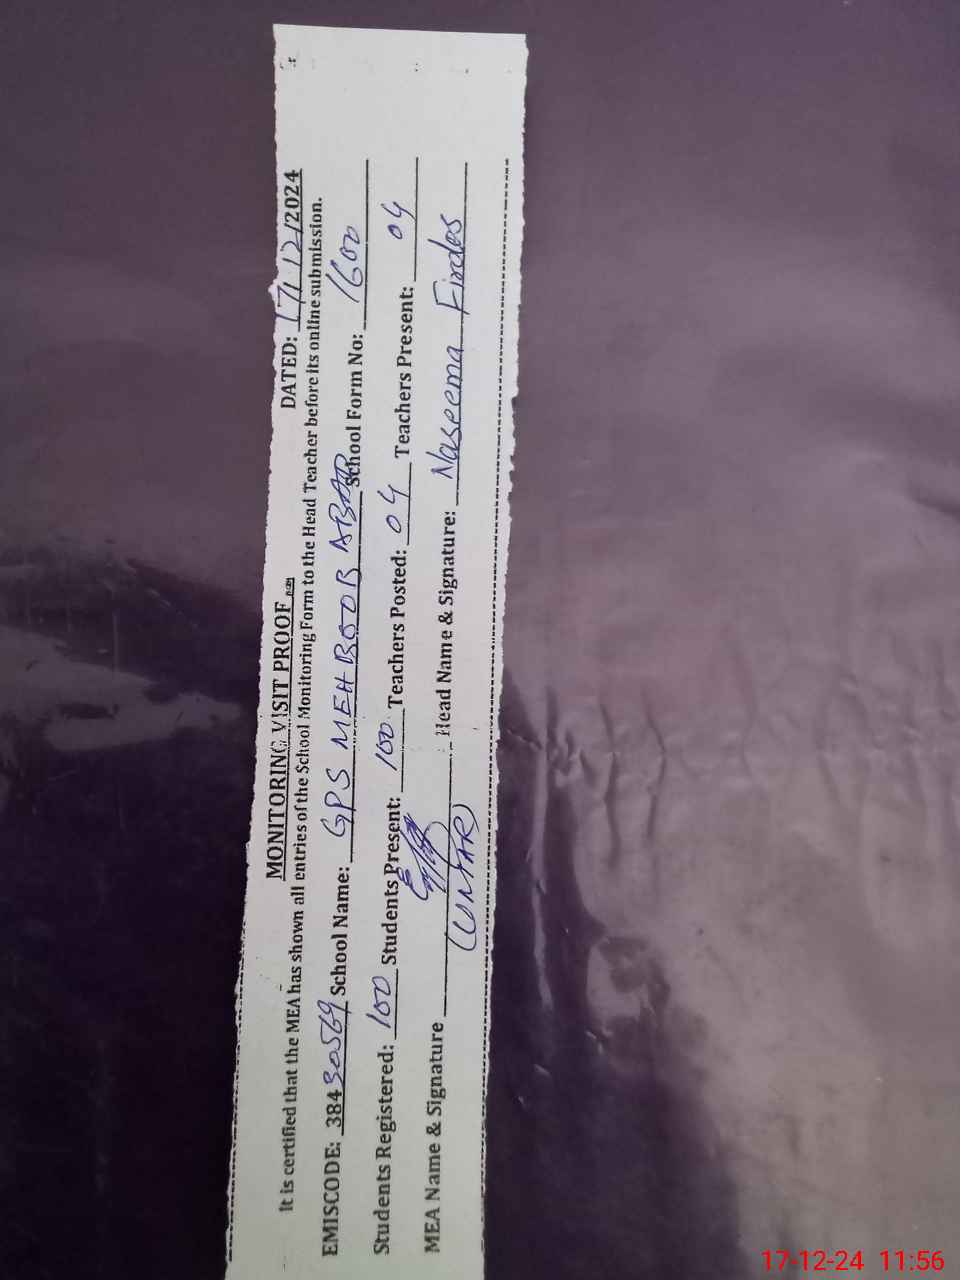 MONITORING VISIT PROOF DATED: 17/12/2024
It is certified that the MEA has shown all entries of the School Monitoring Form to the Head Teacher before its online submission.
EMISCODE: 38430569 School Name: GPS MEHBOOB ABAD School Form No: 1600
Students Registered: 100 Students Present: 100 Teachers Posted: 04 Teachers Present: 04
MEA Name & Signature Head Name & Signature: Naseema Firdos
17-12-24 11:56